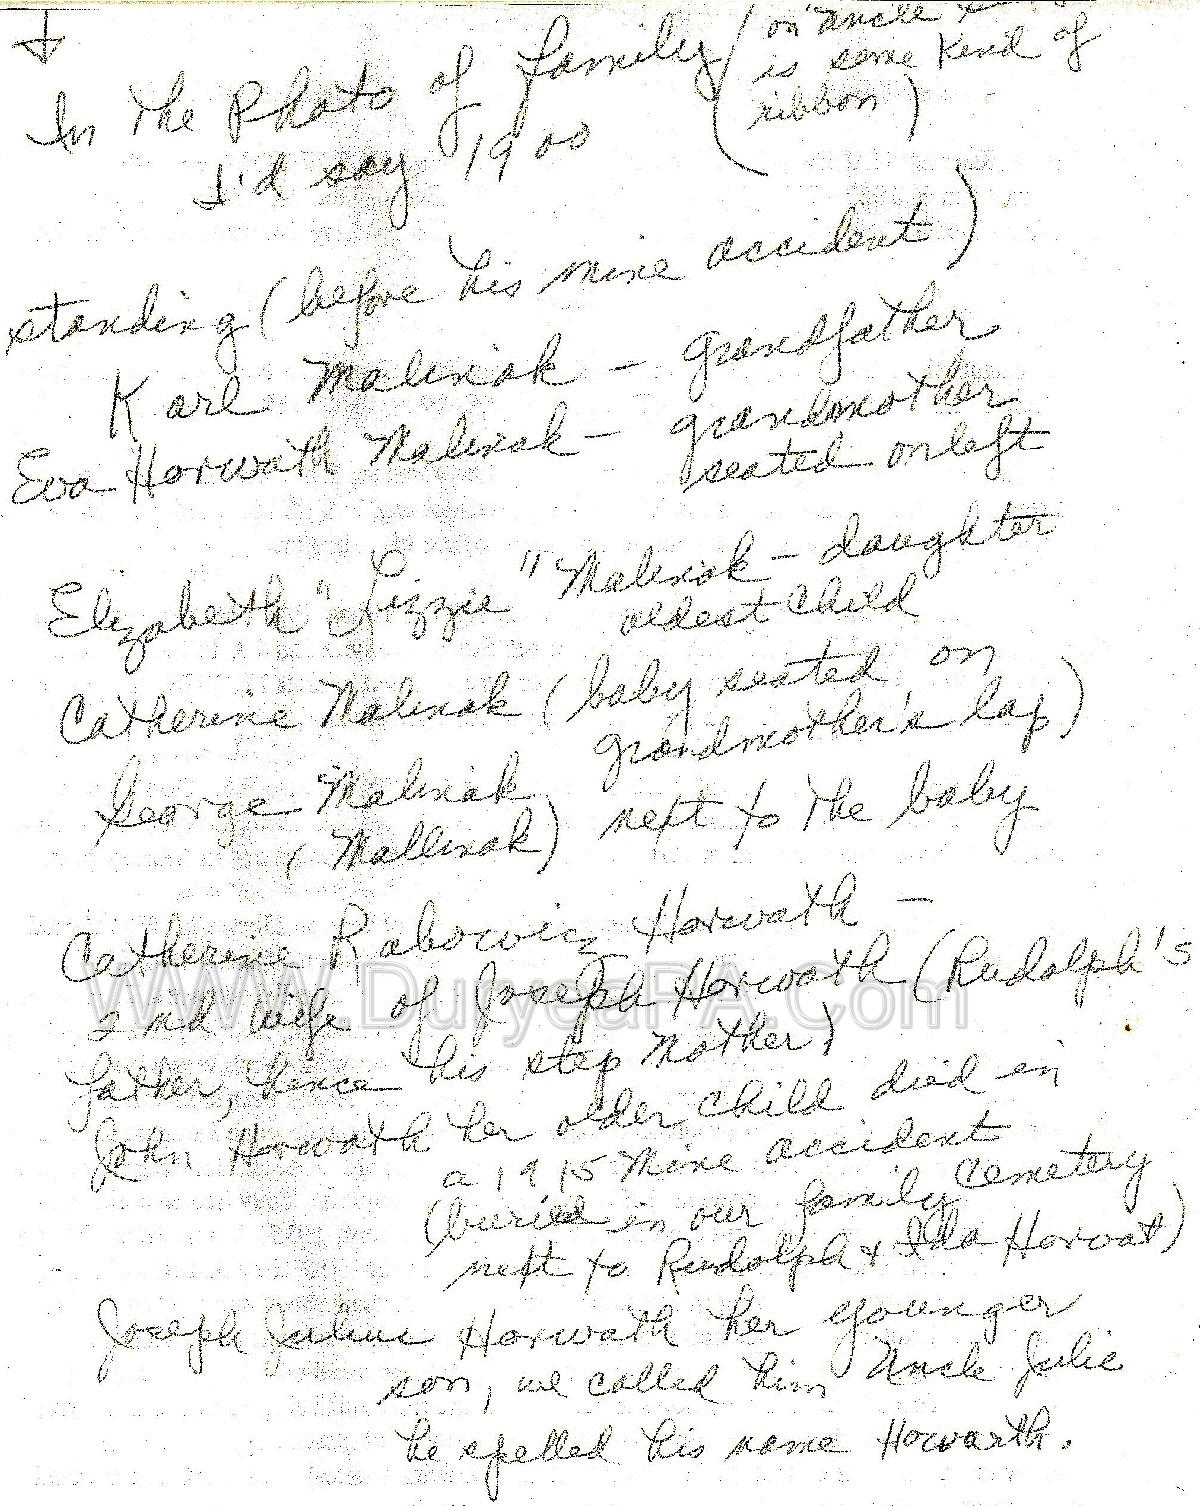 In the Photo of family (on Uncle
is some kind of
ribbon)
I'd say 1900
standing (before his mine accident)
Karl Malinak - grandfather
Eva Horwath Malinak - grandmother
seated on left
Elizabeth "Lizzie" Malinak - daughter
oldest child
Catherine Malinak (baby seated on
grandmother's lap)
George Malinak
(Mallinak) next to the baby
Catherine Rabowicz Horwath -
2nd wife of Joseph Horwath (Rudolph's
father, hence his step Mother)
John Horwath her older child died in
a 1915 Mine accident
(buried in our family cemetery
next to Rudolph & Ida Horwat)
Joseph Julius Horwath her younger
son, we called him Uncle Julie
he spelled his name Howarth.
www.DuryeaPA.com